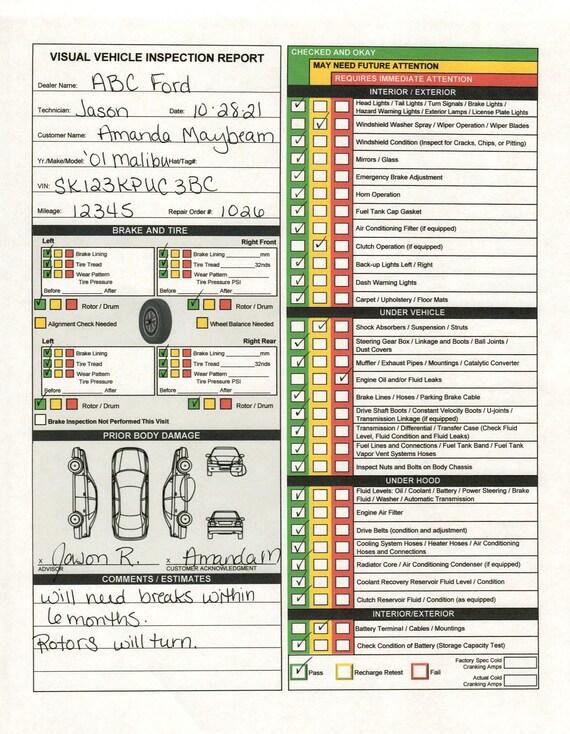 VISUAL VEHICLE INSPECTION REPORT
Dealer Name: ABC Ford
Technician: Jason Date: 10·28·21
Customer Name: Amanda Maybeam
Yr./Make/Model: '01 malibu Hat/Tag#:
VIN: SK123KPUC3BC
Mileage: 12345 Repair Order #: 1026
BRAKE AND TIRE
Left Right Front
Brake Lining Brake Lining mm
Tire Tread Tire Tread 32nds
Wear Pattern Wear Pattern
Tire Pressure Tire Pressure PSI
Before After Before After
Rotor / Drum Rotor / Drum
Alignment Check Needed Wheel Balance Needed
Left Right Rear
Brake Lining Brake Lining mm
Tire Tread Tire Tread 32nds
Wear Pattern Wear Pattern
Tire Pressure Tire Pressure PSI
Before After Before After
Rotor / Drum Rotor / Drum
Brake Inspection Not Performed This Visit
PRIOR BODY DAMAGE
x Jason R. x Amanda M
ADVISOR CUSTOMER ACKNOWLEDGMENT
COMMENTS / ESTIMATES
will need breaks within
6 months.
Rotors will turn.
CHECKED AND OKAY
MAY NEED FUTURE ATTENTION
REQUIRES IMMEDIATE ATTENTION
INTERIOR / EXTERIOR
Head Lights / Tail Lights / Turn Signals / Brake Lights /
Hazard Warning Lights / Exterior Lamps / License Plate Lights
Windshield Washer Spray / Wiper Operation / Wiper Blades
Windshield Condition (Inspect for Cracks, Chips, or Pitting)
Mirrors / Glass
Emergency Brake Adjustment
Horn Operation
Fuel Tank Cap Gasket
Air Conditioning Filter (if equipped)
Clutch Operation (if equipped)
Back-up Lights Left / Right
Dash Warning Lights
Carpet / Upholstery / Floor Mats
UNDER VEHICLE
Shock Absorbers / Suspension / Struts
Steering Gear Box / Linkage and Boots / Ball Joints /
Dust Covers
Muffler / Exhaust Pipes / Mountings / Catalytic Converter
Engine Oil and/or Fluid Leaks
Brake Lines / Hoses / Parking Brake Cable
Drive Shaft Boots / Constant Velocity Boots / U-joints /
Transmission Linkage (if equipped)
Transmission / Differential / Transfer Case (Check Fluid
Level, Fluid Condition and Fluid Leaks)
Fuel Lines and Connections / Fuel Tank Band / Fuel Tank
Vapor Vent Systems Hoses
Inspect Nuts and Bolts on Body Chassis
UNDER HOOD
Fluid Levels: Oil / Coolant / Battery / Power Steering / Brake
Fluid / Washer / Automatic Transmission
Engine Air Filter
Drive Belts (condition and adjustment)
Cooling System Hoses / Heater Hoses / Air Conditioning
Hoses and Connections
Radiator Core / Air Conditioning Condenser (if equipped)
Coolant Recovery Reservoir Fluid Level / Condition
Clutch Reservoir Fluid / Condition (as equipped)
INTERIOR/EXTERIOR
Battery Terminal / Cables / Mountings
Check Condition of Battery (Storage Capacity Test)
Pass Recharge Retest Fail
Factory Spec Cold
Cranking Amps
Actual Cold
Cranking Amps